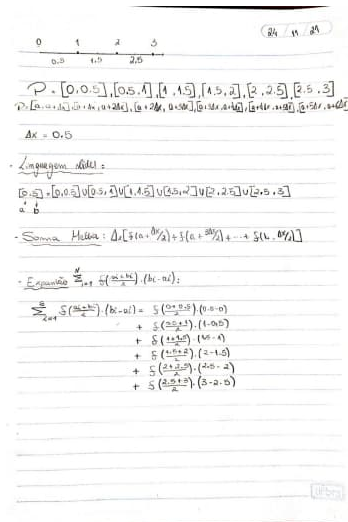 24/11/21
0 1 2 3
0.5 1.5 2.5
P = [0,0.5],[0.5,1],[1,1.5],[1.5,2],[2,2.5],[2.5,3]
P=[a,a+Δx],[a+Δx,a+2Δx],[a+2Δx,a+3Δx],[a+3Δx,a+4Δx],[a+4Δx,a+5Δx],[a+5Δx,a+6Δx]
Δx = 0.5
[0.5]=[0,0.5]∪[0.5,1]∪[1,1.5]∪[1.5,2]∪[2,2.5]∪[2.5,3]
a b
- Soma Média: Δx[f(a+Δx/2)+f(a+3Δx/2)+...+f(b-Δx/2)]
- Expansão ∑ᴺᵢ₌₁ f((ai+bi)/2).(bi-ai):
∑⁶ᵢ₌₁ f((ai+bi)/2).(bi-ai) = f((0+0.5)/2).(0.5-0)
+ f((0.5+1)/2).(1-0.5)
+ f((1+1.5)/2).(1.5-1)
+ f((1.5+2)/2).(2-1.5)
+ f((2+2.5)/2).(2.5-2)
+ f((2.5+3)/2).(3-2.5)